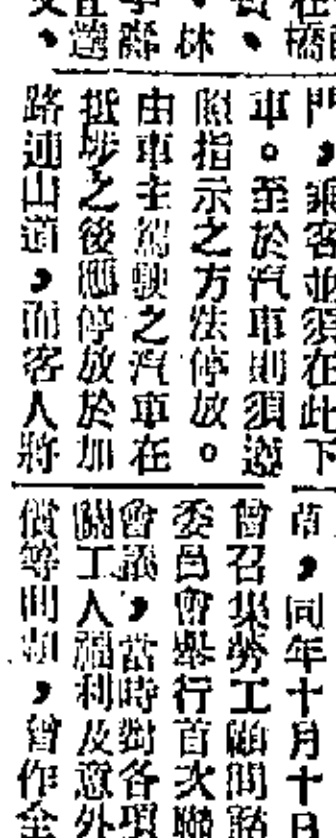 在橋
、林
宜趙
門，乘客並須在此下
車。至於汽車則須遵
照指示之方法停放。
由車主駕駛之汽車在
抵埗之後應停放於加
路連山道，而客人將
，同年十月十日
曾召集勞工顧問聯
委員會舉行首次聯
會議，當時對各項
關工人福利及意外
償等問題，曾作全